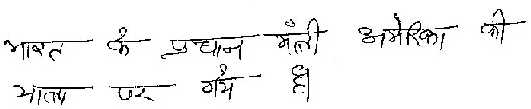 भारत के प्रधान मंत्री अमेरिका की
यात्रा पर गये है।